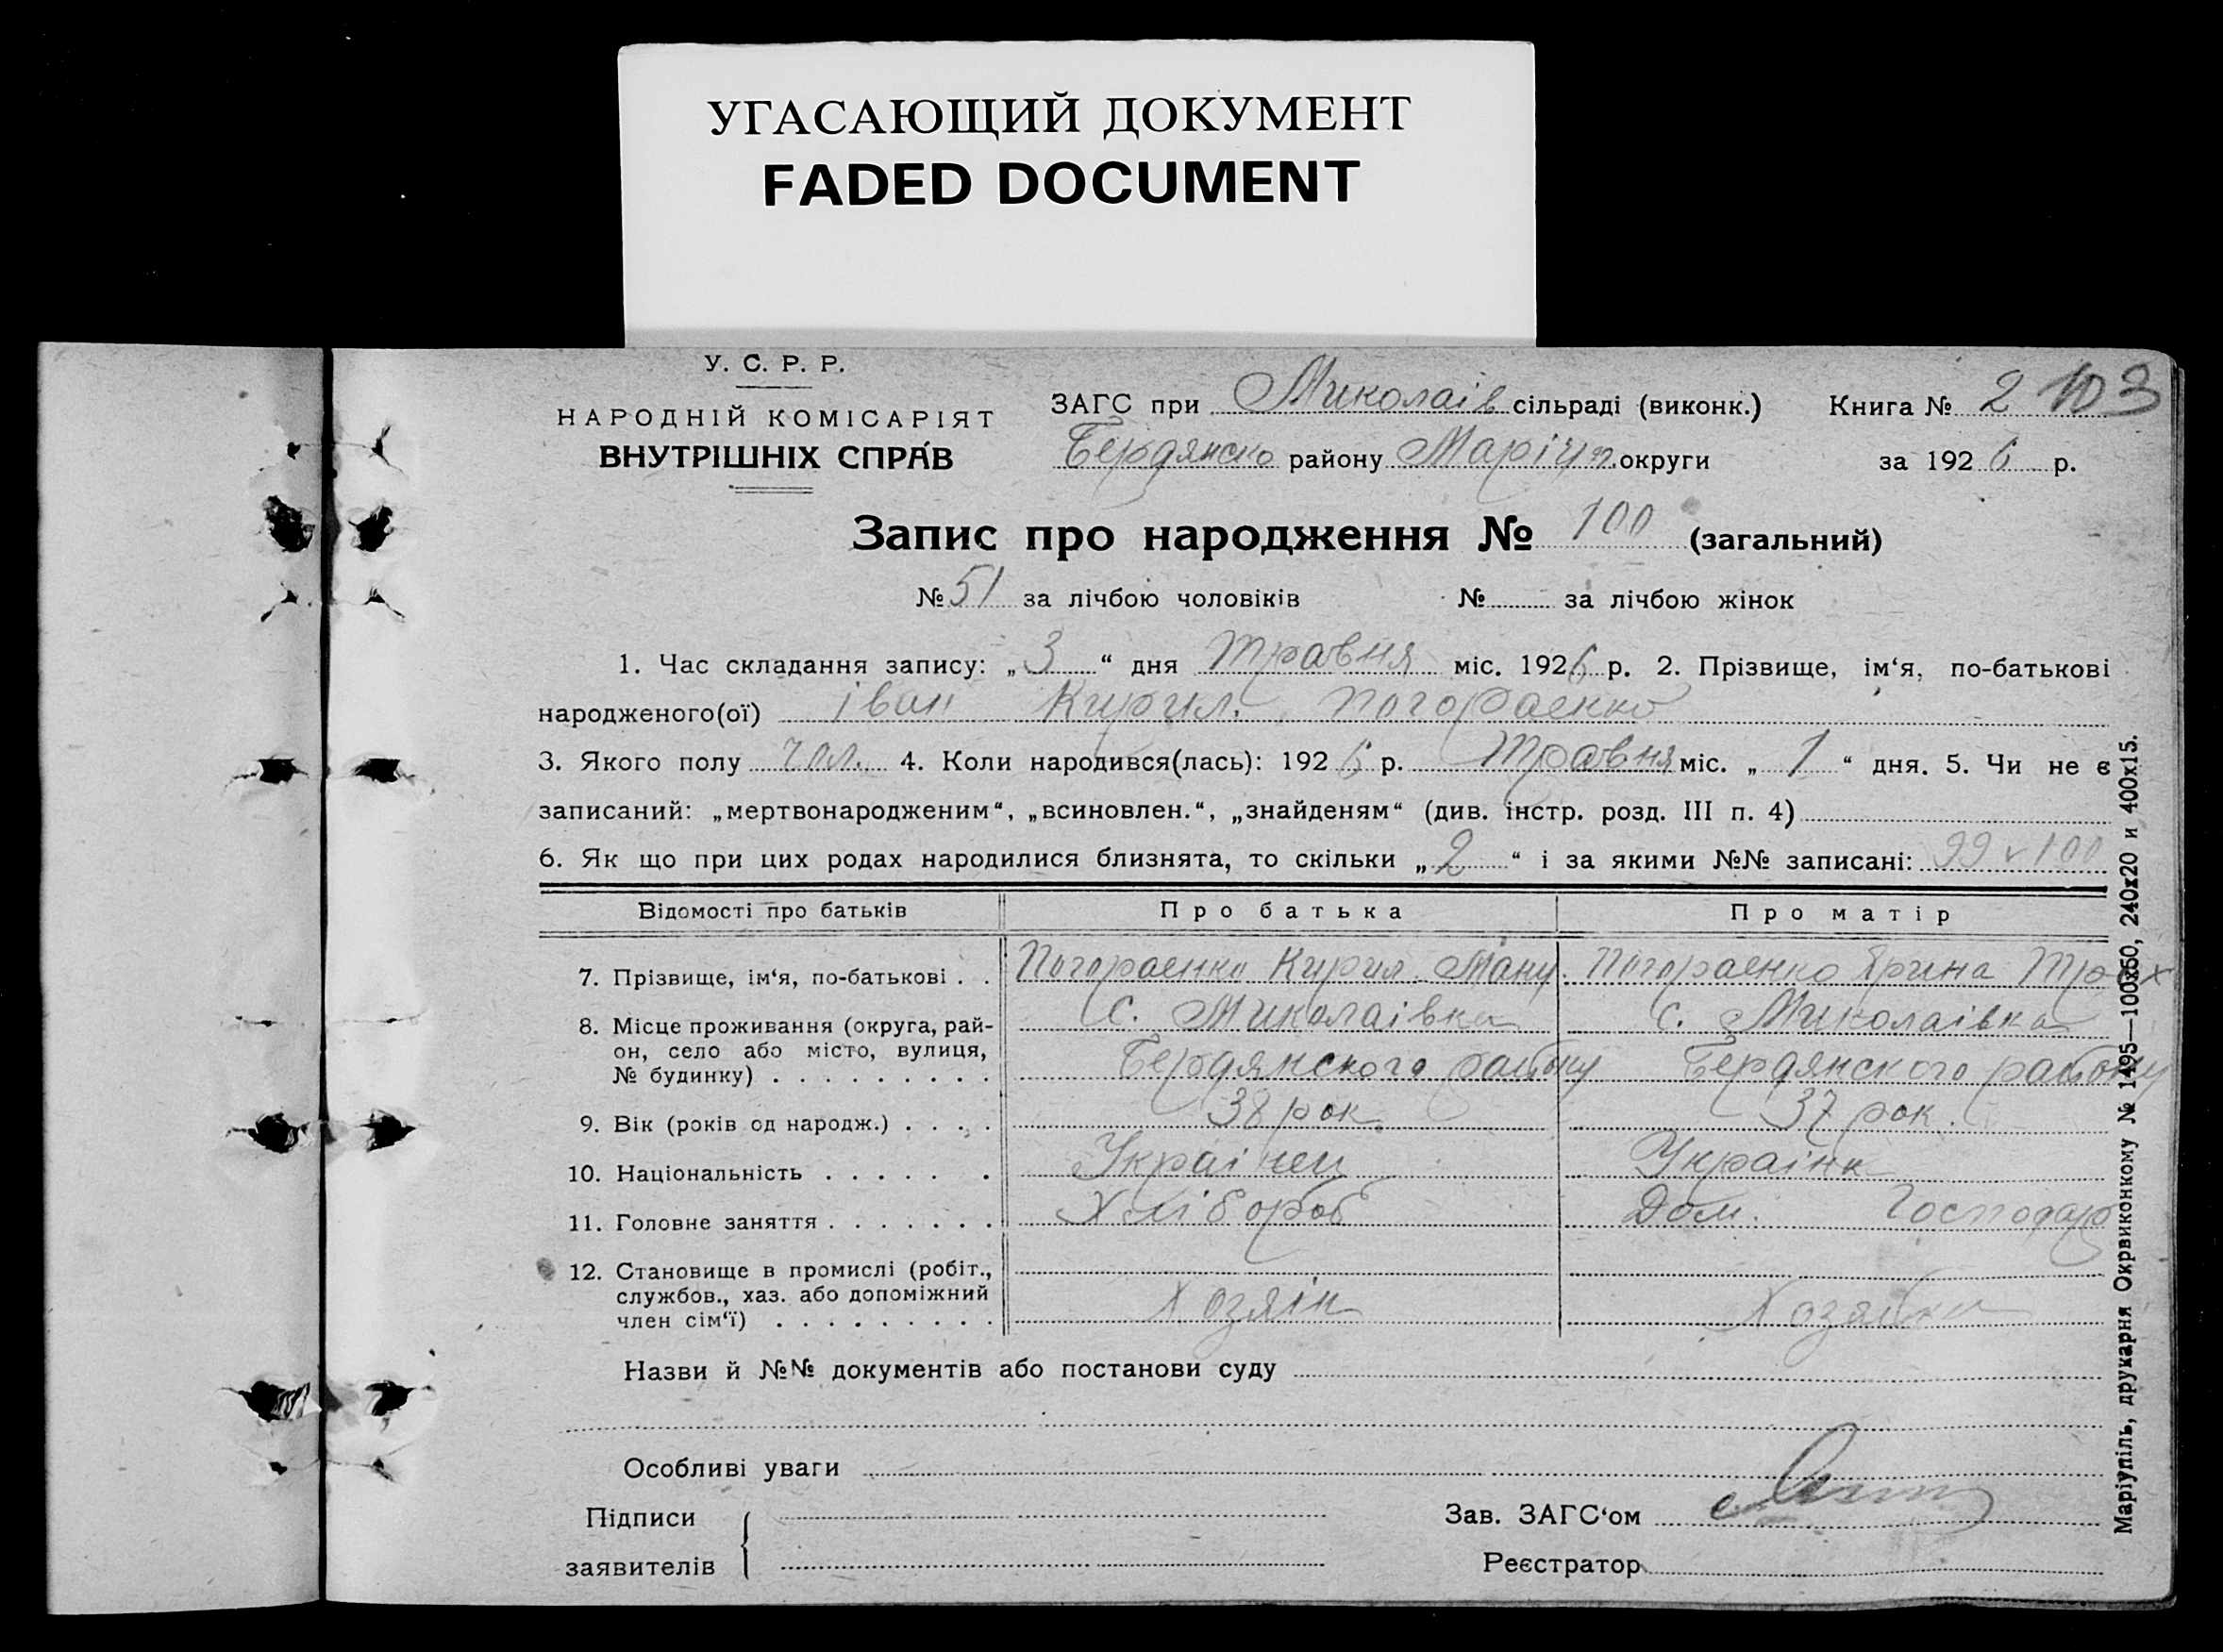 УГАСАЮЩИЙ ДОКУМЕНТ
FADED DOCUMENT
У. С. Р. Р.
НАРОДНІЙ КОМІСАРІЯТ
ВНУТРІШНІХ СПРАВ
ЗАГС при Миколаів сільраді (виконк.) Книга № 2 103
Бердянско району Маріуп. округи за 1926 р.
Запис про народження № 100 (загальний)
№ 51 за лічбою чоловіків № за лічбою жінок
1. Час складання запису: „3“ дня Травня міс. 1926 р. 2. Прізвище, ім‘я, по-батькові
народженого(ої) Іван Кирил. Погораенко
3. Якого полу чол. 4. Коли народився(лась): 1926 р. Травня міс. „1“ дня. 5. Чи не є
записаний: „мертвонародженим“, „всиновлен.“, „знайденям“ (див. інстр. розд. III п. 4)
6. Як що при цих родах народилися близнята, то скільки „2“ і за якими №№ записані: 99 v 100
Відомості про батьків Про батька Про матір
7. Прізвище, ім‘я, по-батькові . . Погораенко Кирил Ману. Погораенко Ярина Троx
8. Місце проживання (округа, рай- С. Миколаівка С. Миколаівка
он, село або місто, вулиця, Бердянского району Бердянского району
№ будинку) . . . . . . . . .
9. Вік (років од народж.) . . . . 38 рок. 37 рок.
10. Національність . . . . . . Украінец Украінк
11. Головне заняття . . . . . . . Хлібороб Дом. Господар
12. Становище в промислі (робіт.,
службов., хаз. або допоміжний Хозяін Хозяйка
член сім‘ї) . . . . . . . . .
Назви й №№ документів або постанови суду
Особливі уваги
Підписи Зав. ЗАГС‘ом
заявителів Реєстратор
Маріупіль, друкарня Окрвиконкому № 1495—100х60, 240х20 и 400х15.